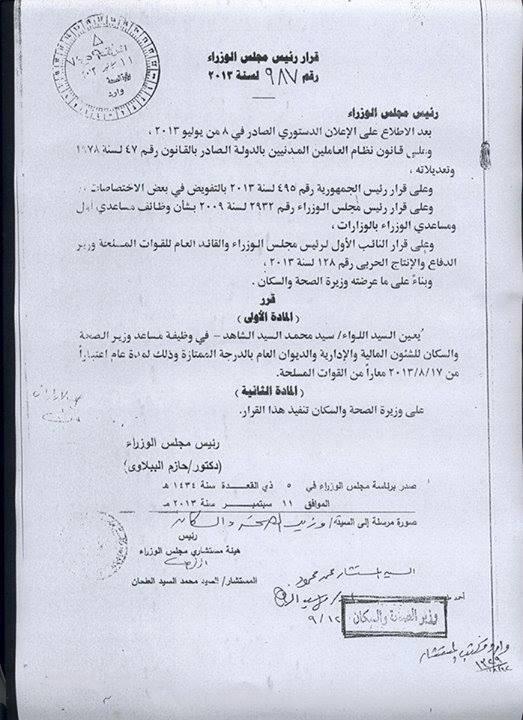 قرار رئيس مجلس الوزراء
رقم ٩٨٧ لسنة ٢٠١٣
رئيس مجلس الوزراء
بعد الاطلاع على الإعلان الدستوري الصادر في ٨ من يوليو ٢٠١٣ ،
وعلى قانون نظام العاملين المدنيين بالدولة الصادر بالقانون رقم ٤٧ لسنة ١٩٧٨
وتعديلاته ،
وعلى قرار رئيس الجمهورية رقم ٤٩٥ لسنة ٢٠١٣ بالتفويض في بعض الاختصاصات ،
وعلى قرار رئيس مجلس الوزراء رقم ٢٩٣٢ لسنة ٢٠٠٩ بشأن وظائف مساعدي أول
ومساعدي الوزراء بالوزارات ،
وعلى قرار النائب الأول لرئيس مجلس الوزراء والقائد العام للقوات المسلحة وزير
الدفاع والإنتاج الحربى رقم ١٢٨ لسنة ٢٠١٣ ،
وبناءً على ما عرضته وزيرة الصحة والسكان .
قرر
( المادة الأولى )
يُعين السيد اللواء/ سيد محمد السيد الشاهد – في وظيفة مساعد وزير الصحة
والسكان للشئون المالية والإدارية والديوان العام بالدرجة الممتازة وذلك لمدة عام اعتباراً
من ٢٠١٣/٨/١٧ معاراً من القوات المسلحة.
( المادة الثانية )
على وزيرة الصحة والسكان تنفيذ هذا القرار.
رئيس مجلس الوزراء
(دكتور/ حازم الببلاوى)
صدر برئاسة مجلس الوزراء في ٥ ذي القعدة سنة ١٤٣٤ هـ
الموافق ١١ سبتمبر سنة ٢٠١٣ مـ
صورة مرسلة إلى السيد/ وزير الصحة والسكان
رئيس
هيئة مستشاري مجلس الوزراء
المستشار/ السيد محمد السيد الطحان
السيد المستشار محمد محمود
أحمد
وزير الصحة والسكان
٩/١٢